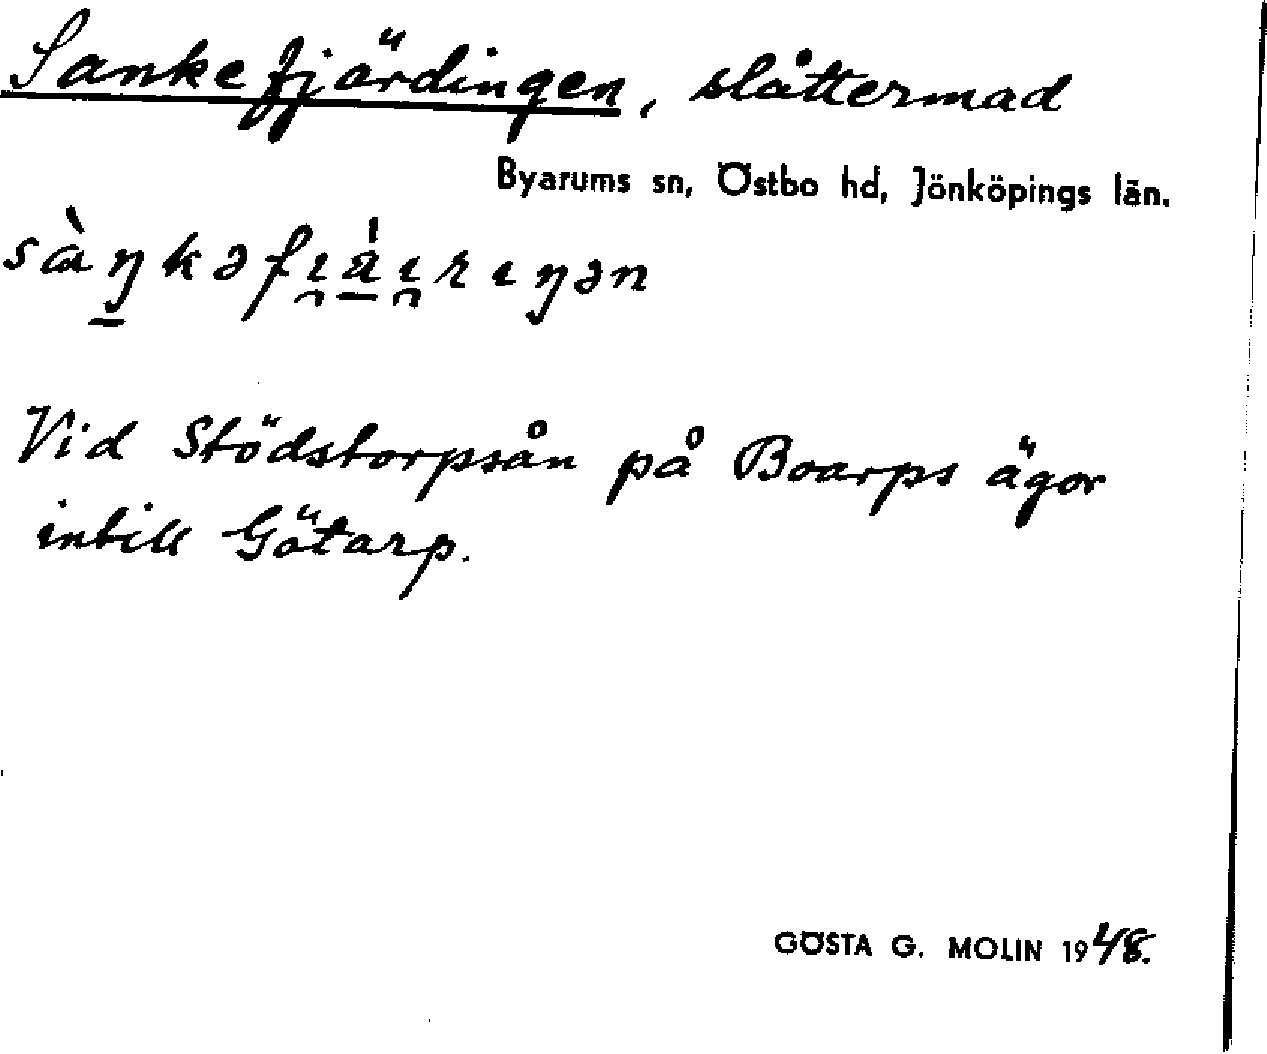 Sankefjärdingen, slåttermad
Byarums sn, Östbo hd, Jönköpings län.
Vid Stödstorpsån på Boarps ägor
intill Götarp.
GÖSTA G. MOLIN 1948.